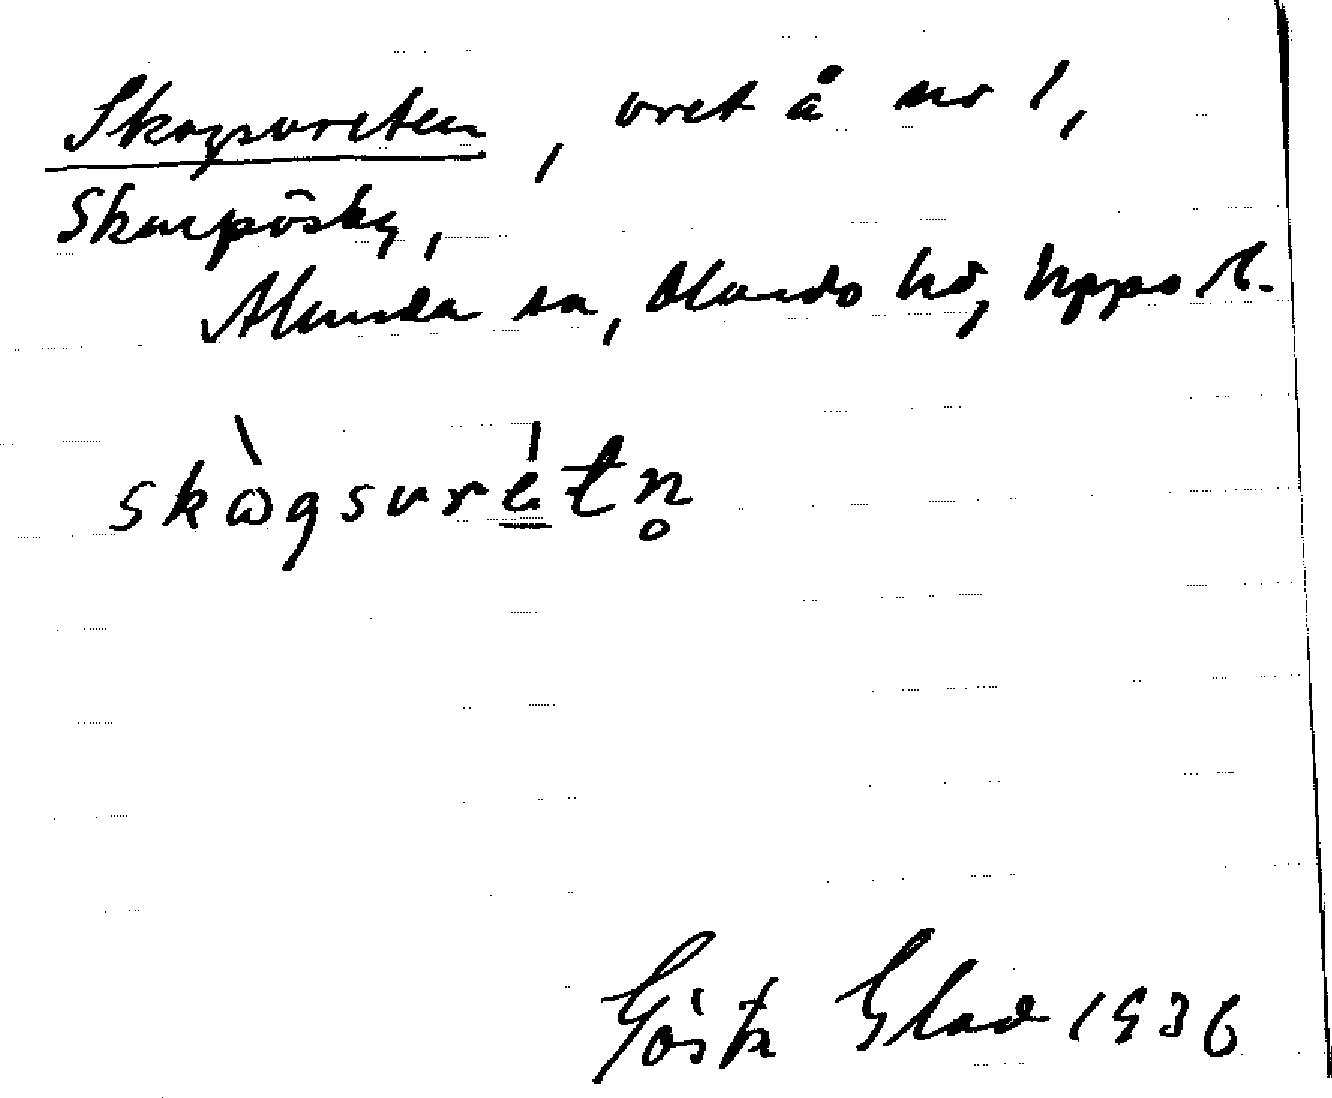 Skogsvreten, vret å nr 1,
Skarpösby,
Alunda sn, Olands hd, Uppsl.
skògsvrétn̥
Gösta Glad 1936